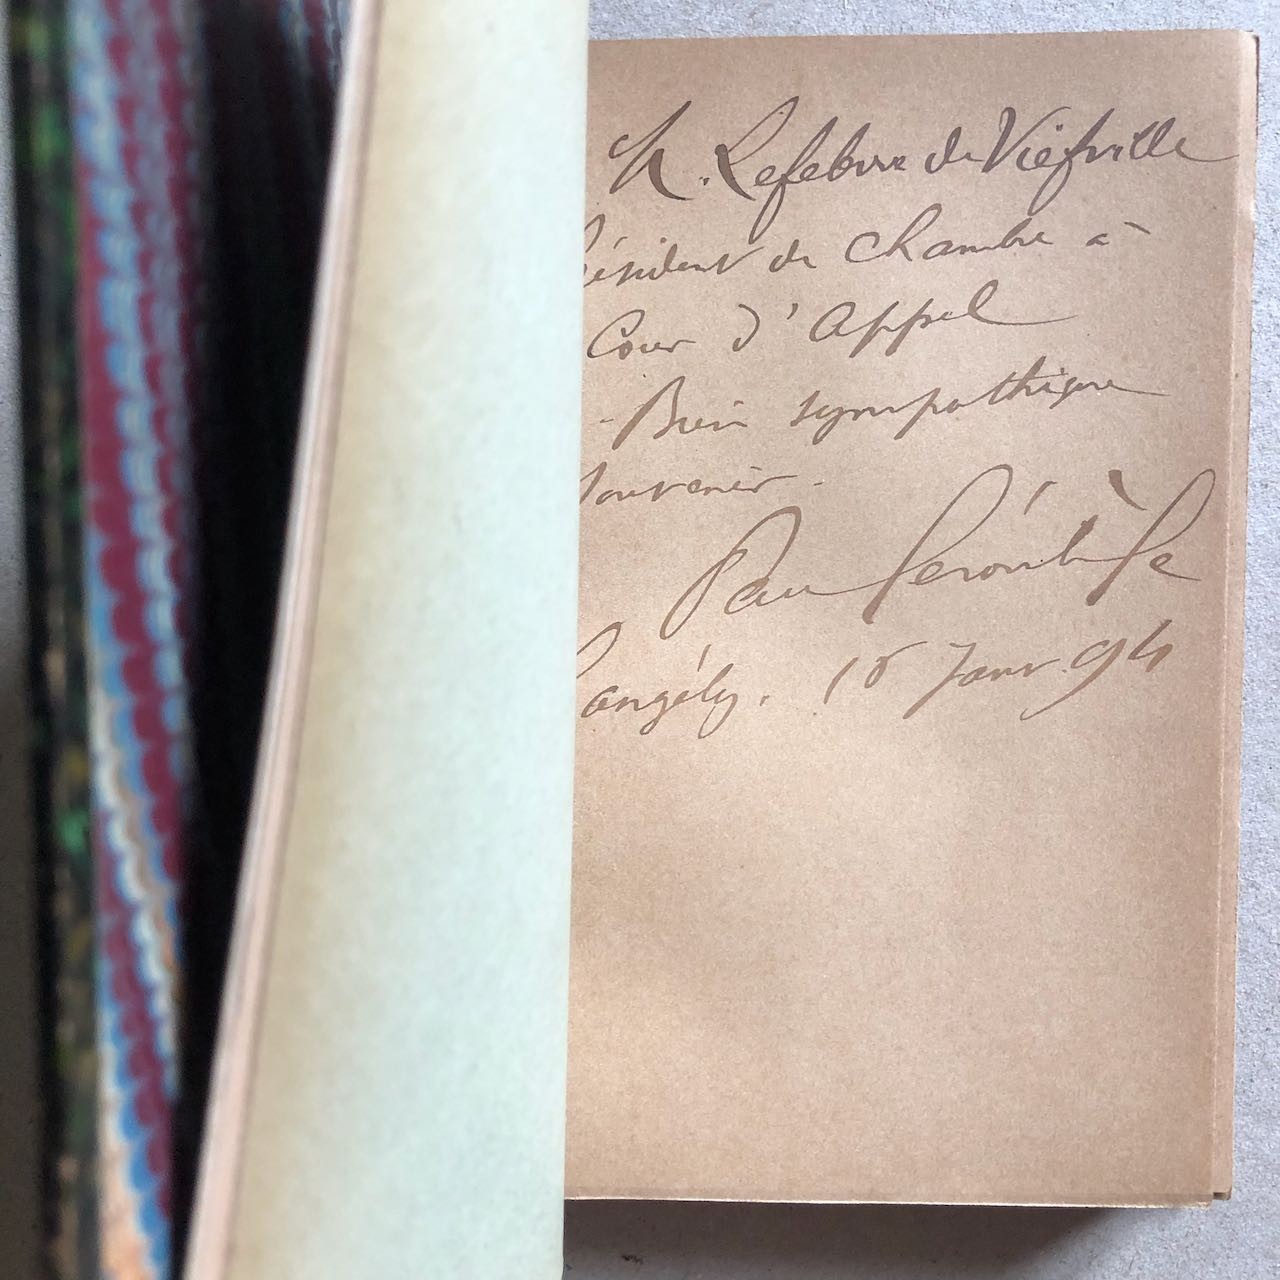 M. Lefebvre de Viefville
résident de Chambre à
Cour d'Appel
- Bien sympathique
Souvenir.
Paul Déroulède
Langély. 18 Janv. 94